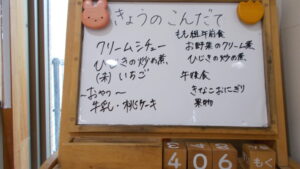 きょうのこんだて
クリームシチュー
ひじきの炒め煮
(未)いちご
～おやつ～
牛乳・桃ケーキ
もも組午前食
お野菜のクリーム煮
ひじきの炒め煮
午後食
きなこおにぎり
果物
4 06 もく